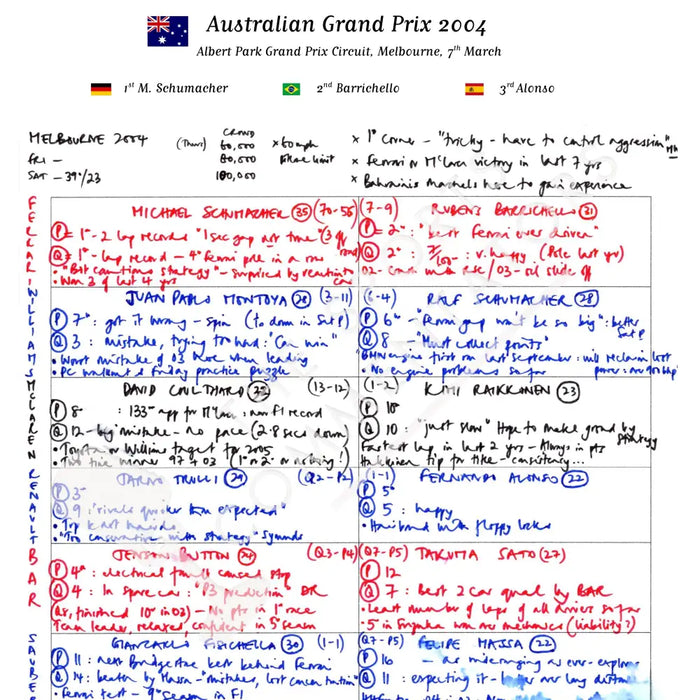 Australian Grand Prix 2004
Albert Park Grand Prix Circuit, Melbourne, 7th March
1st M. Schumacher 2nd Barrichello 3rd Alonso
MELBOURNE 2004 (Thurs) CROWD 60,000 × 60mph
FRI - 80,000
SAT - 39°/23 100,000
× 1° Corner - "tricky - have to control aggression" MW
× Ferrari or M'Laren victory in last 7 yrs
× Bahrain's Marshals here to gain experience
FERRARI
MICHAEL SCHUMACHER 35 (70-56)
P = 1° - 2 lap record "1 sec gap not true"
Q = 1° - lap record - 4° Ferrari pole in a row
• "Bit cautious strategy" - surprised by reaction
• Won 3 of last 4 yrs
(7-9) RUBENS BARRICHELLO 31
P = 2° : "best Ferrari ever driven"
Q 2° : v. happy (Pole last yr)
WILLIAMS
JUAN PABLO MONTOYA 28 (3-11)
P 7° : got it wrong - spin (to down in Sat P)
Q 3 : mistake, trying too hard : "Can win"
• Worst mistake of 03 here when leading
• PC Friday practice puzzle
(6-4) RALF SCHUMACHER 28
P 6° - "Ferrari gap won't be so big" : better Sat P
Q 8 - "Must collect points"
BMW engine first on last September : will reclaim lost
• No engine problems so far
MCLAREN
DAVID COULTHARD 32 (13-12)
P 8° : 133° app for M'Laren : new F1 record
Q 12 - big mistake - no pace (2.8 secs down)
• Toyota or Williams target for 2005
• Two time winner 97 + 03 (1° or 2° or nothing!)
(1-2) KIMI RAIKKONEN 23
P 10
Q 10 : "just slow" Hope to make ground by strategy
Fastest lap in last 2 yrs - Always in pts
Hakkinen tip for title - consistency...
RENAULT
JARNO TRULLI 29 (Q2-P2)
P 3°
Q 9 "rivals quicker than expected"
• "Too conservative with strategy" Symonds
(1-1) FERNANDO ALONSO 22
P 5°
Q 5 : happy
• Hairband with floppy locks
BAR
JENSON BUTTON 24 (Q3-P4)
P 4° : electrical fault caused stop
Q 4 : In spare car : "P3 prediction" DR
(Q8, finished 10° in 03) - No pts in 1° race
Team leader, relaxed, confident in 5° season
(Q7-P5) TAKUMA SATO (27)
P 12
Q 7 : Best 2 car qual by BAR
• Least number of laps of all drivers so far
• 5 in Suzuka won over mechanics (liability?)
SAUBER
GIANCARLO FISICHELLA 30 (1-1)
P 11 : next Bridgestone best behind Ferrari
Q 14 : beaten by Massa - "mistakes, lost concentration"
• Ferrari test - 9° season in F1
(Q7-P5) FELIPE MASSA 22
P 16
Q 11 : expecting it -